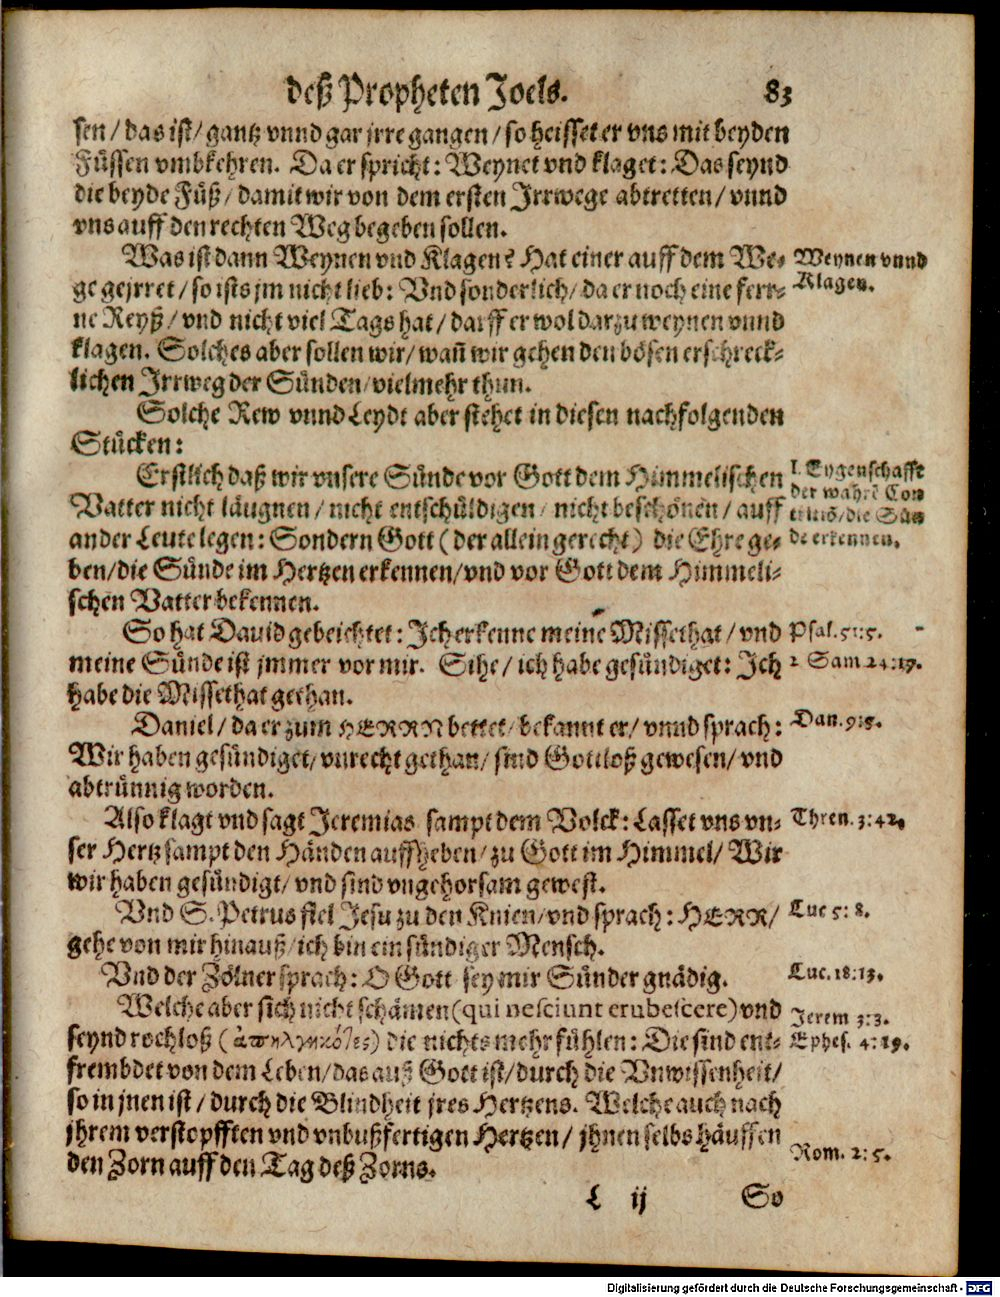 deß Propheten Joels. 83
sen/ das ist/ gantz vnnd gar jrre gangen/ so heisset er vns mit beyden
Füssen vmbkehren. Da er spricht: Weynet vnd klaget: Das seynd
die beyde Füß/ damit wir von dem ersten Irrwege abtretten/ vnnd
vns auff den rechten Weg begeben sollen.
Was ist dann Weynen vnd Klagen? Hat einer auff dem We-
ge gejrret/ so ists jm nicht lieb: Vnd sonderlich/ da er noch eine fer-
ne Reyß/ vnd nicht viel Tags hat/ darff er wol darzu weynen vnnd
klagen. Solches aber sollen wir/ wañ wir gehen den bösen erschreck-
lichen Irrweg der Sünden/ vielmehr thun.
Weynen vnnd
Klagen.
Solche Rew vnnd Leydt aber stehet in diesen nachfolgenden
Stücken:
Erstlich daß wir vnsere Sünde vor Gott dem Himmelischen
Vatter nicht läugnen/ nicht entschüldigen/ nicht beschönen/ auff
ander Leute legen: Sondern Gott (der allein gerecht) die Ehre ge-
ben/ die Sünde im Hertzen erkennen/ vnd vor Gott dem Himmeli-
schen Vatter bekennen.
1. Eygenschafft
der wahrẽ Con
tritiõ/ die Sün
de erkennen.
So hat Dauid gebeichtet: Ich erkenne meine Missethat/ vnd
meine Sünde ist jmmer vor mir. Sihe/ ich habe gesündiget: Ich
habe die Missethat gethan.
Psal. 51:5.
2. Sam 24:17.
Daniel/ da er zum HERRN bettet/ bekannt er/ vnnd sprach:
Wir haben gesündiget/ vnrecht gethan/ sind Gottloß gewesen/ vnd
abtrünnig worden.
Dan. 9:5.
Also klagt vnd sagt Jeremias sampt dem Volck: Lasset vns vn-
ser Hertz sampt den Händen auffheben/ zu Gott im Himmel/ Wir
wir haben gesündigt/ vnd sind vngehorsam gewest.
Thren. 3:42.
Vnd S. Petrus fiel Jesu zu den Knien/ vnd sprach: HERR/
gehe von mir hinauß/ ich bin ein sündiger Mensch.
Luc 5: 8.
Vnd der Zölner sprach: O Gott sey mir Sünder gnädig.
Luc. 18:13.
Welche aber sich nicht schämen (qui nesciunt erubescere) vnd
seynd rochloß (ἀπηλγηκότες) die nichts mehr fühlen: Die sind ent-
frembdet von dem Leben/ das auß Gott ist/ durch die Vnwissenheit/
so in jnen ist/ durch die Blindheit jres Hertzens. Welche auch nach
jhrem verstopfften vnd vnbußfertigen Hertzen/ jhnen selbs häuffen
den Zorn auff den Tag deß Zorns.
Jerem 3:3.
Ephes. 4:19.
Rom. 2:5.
L ij So
Digitalisierung gefördert durch die Deutsche Forschungsgemeinschaft - DFG